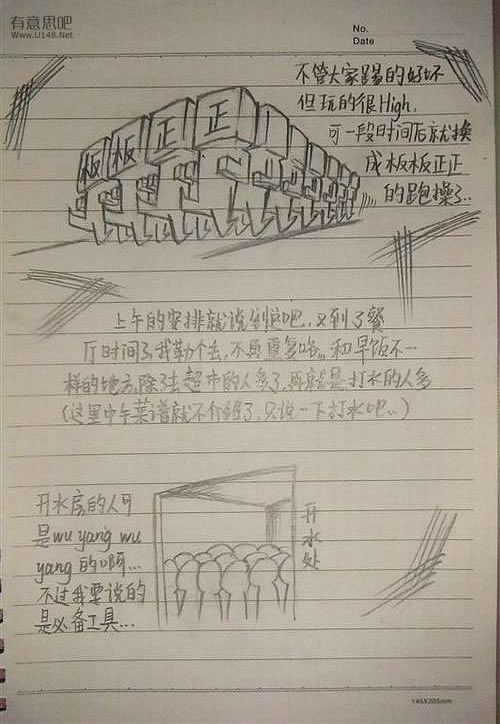 有意思吧
www.U148.Net
No.
Date
不管大家踢的好坏
但玩的很High,
可一段时间后就换
成板板正正
的跑操了..
板板正正
上午的安排就说到这吧,,又到了餐
厅时间了,我勒个去,不再重复咯,,,和早饭不一
样的地方,除了去超市的人多了,再就是打水的人多
(这里中午菜谱就不介绍了,只说一下打水吧..)
开水房的人可
是wu yang wu
yang的啊...
不过我要说的
是必备工具...
开水处
145X203mm